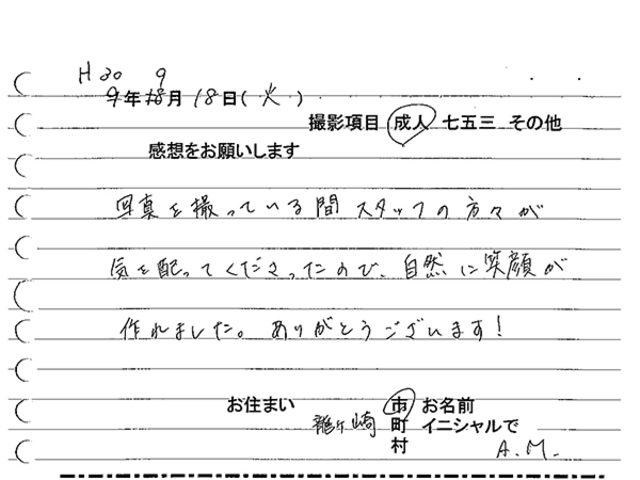 H30 9
9年18月18日(火)
撮影項目 成人 七五三 その他
感想をお願いします
写真を撮っている間スタッフの方々が
気を配ってくださったので、自然に笑顔が
作れました。ありがとうございます!
お住まい 龍ヶ崎 市町村 お名前 イニシャルで
A.M.